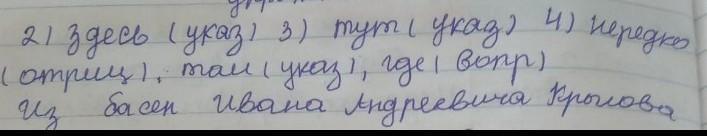 2) Здесь (указ) 3) тут (указ) 4) нередко
(отриц), там (указ), где (вопр)
Из басен Ивана Андреевича Крылова